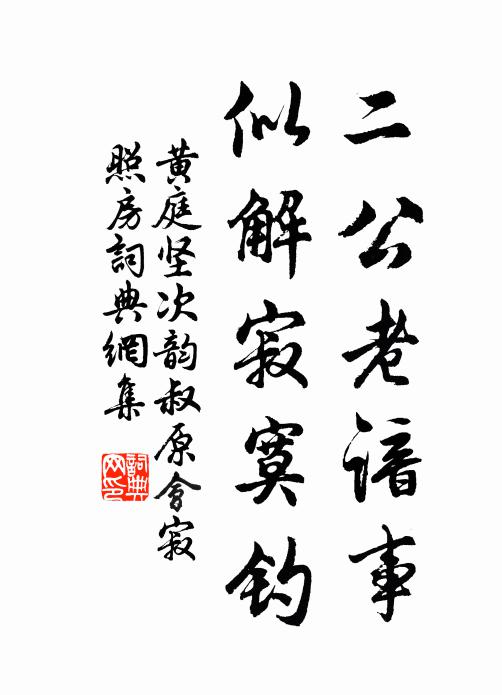 二公老谙事
似解寂寞钓
黄庭坚次韵叔原会寂
照房詞典網集
詞典
网印